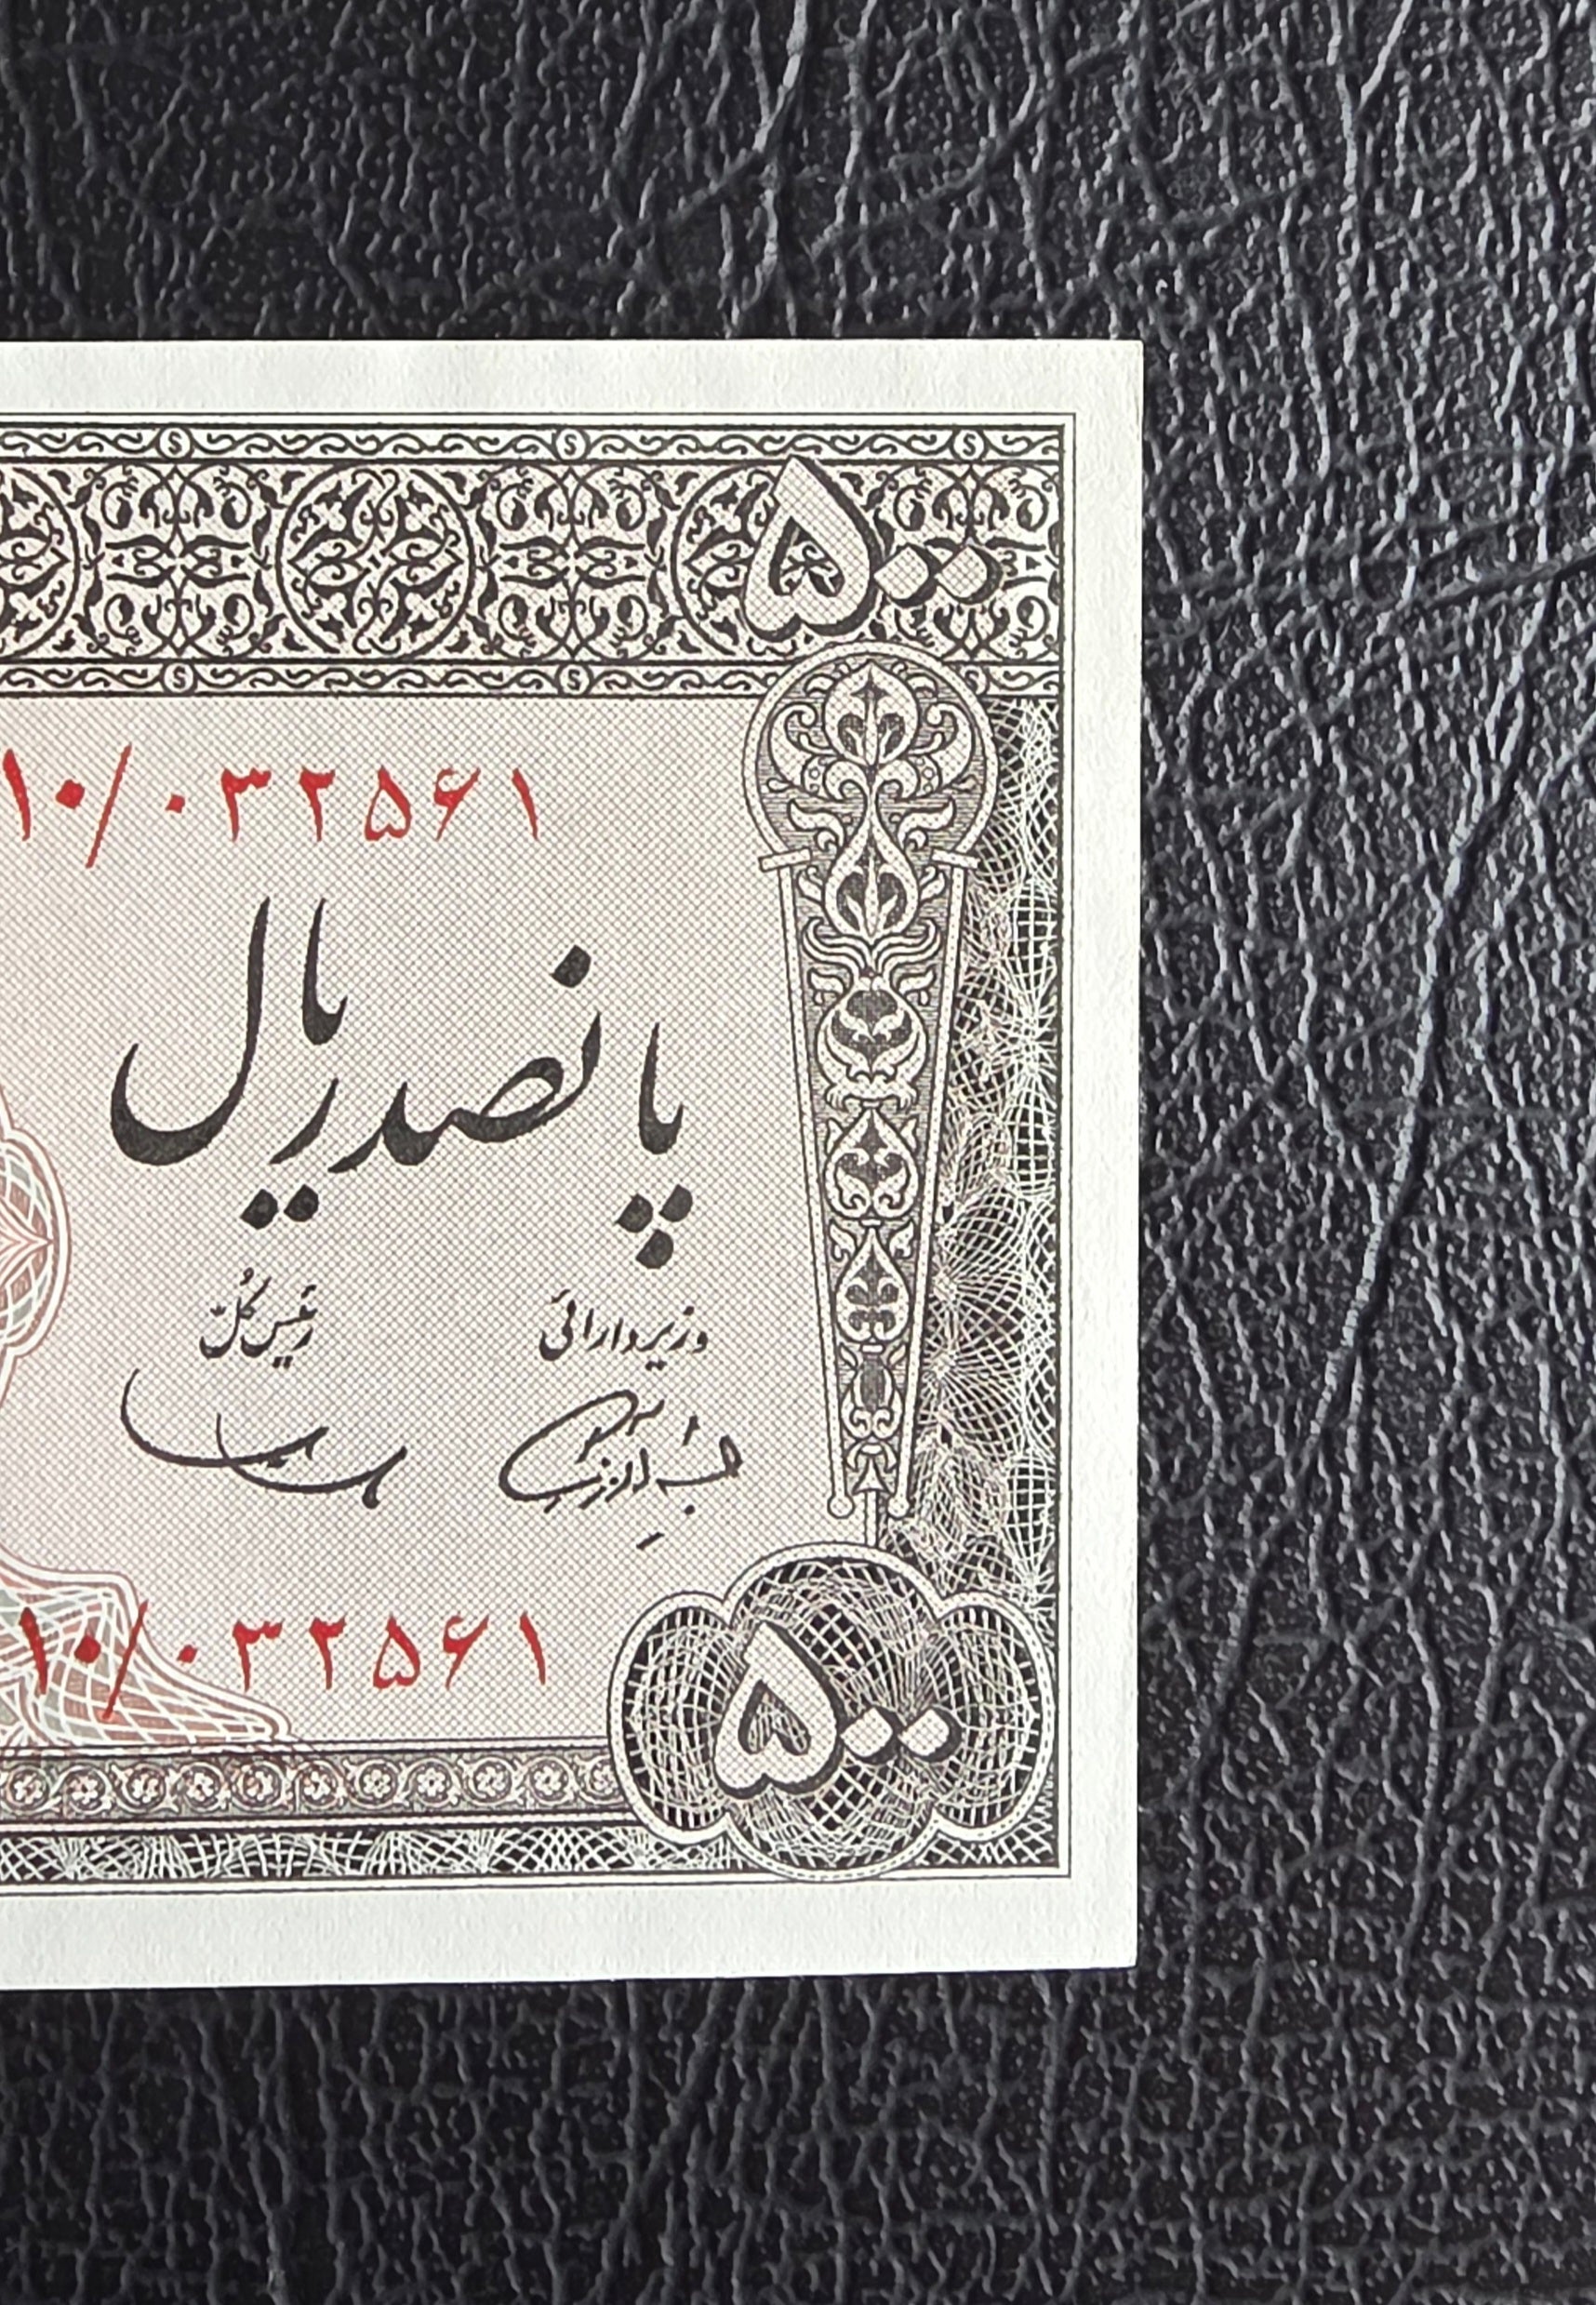 ۵۰۰
۱۰/۰۳۲۵۶۱
پانصد ریال
وزیر دارائی
رئیس کلّ
۱۰/۰۳۲۵۶۱
۵۰۰